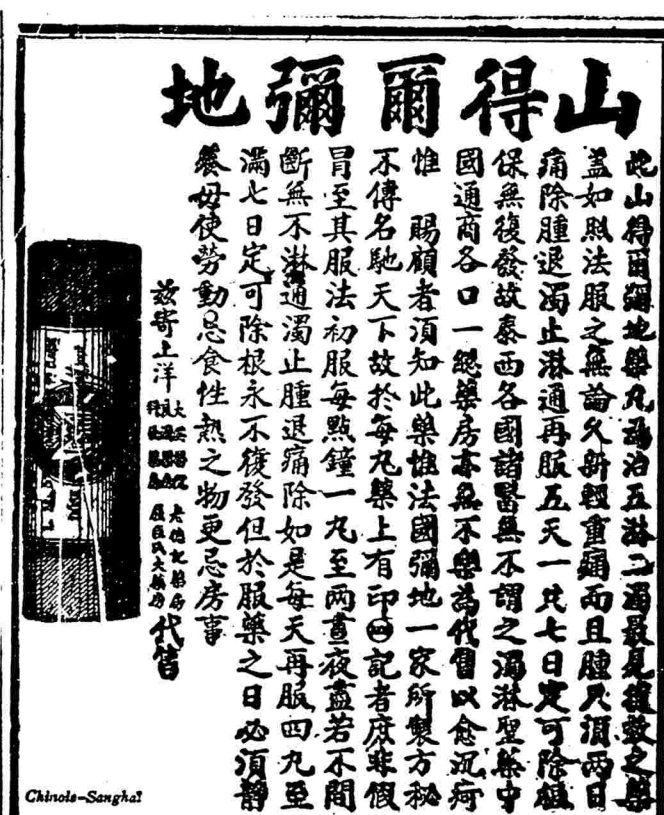 山得爾彌地
此山得爾彌地藥丸通治五淋二濁最見後效之藥
盖如照法服之無論久新輕重痛而且腫只須两日
痛除腫退濁止淋通再服五天一共七日定可除根
保無復發故泰西各國諸醫無不謂之濁淋聖藥中
國通商各口一總藥房亦無不樂為代售以愈沉疴
惟 賜顧者須知此藥惟法國彌地一家所製方秘
不傳名馳天下故於每丸藥上有印記者庶非假
冒至其服法初服每點鐘一丸至两晝夜盖若不間
斷無不淋通濁止腫退痛除如是每天再服四丸至
滿七日定可除根永不復發但於服藥之日必須靜
養毋使勞動忌食性熱之物更忌房事
兹寄上洋
老德記藥房
屈臣氏大藥房
代售
Chinois-Sanghaï